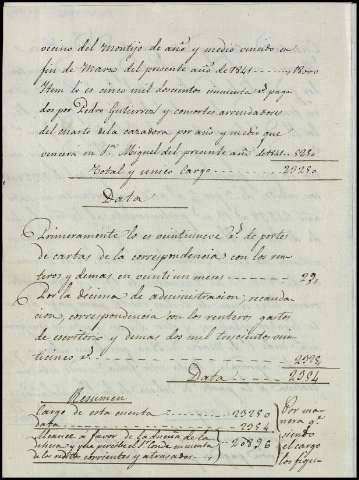 vecino del Montijo de año y medio vencido en
fin de Marzo del presente año de 1841 18000
Item lo es cinco mil doscientos cincuenta r.s paga
dos por Pedro Gutierrez y consortes arrendadores
del cuarto de la cazadora por año y medio que
vencerá en S.n Miguel del presente año de 1841 5250
Total y unico Cargo 23250
Data
Primeramente lo es veintinueve r.s de portes
de cartas de la correspondencia con los ren
teros y demas en veintiun meses 29
Por la décima de administracion, recauda
cion, correspondencia con los renteros gastos
de escritorio y demas dos mil trescientos vein
ticinco r.s 2325
Data 2354
Resumen
Cargo de esta cuenta 23250
data 2354
Alcance a favor de la dueña de la
dehesa y que percibe el S. Conde en cuenta 20896
de los reditos corrientes y atrasados
Por ma
nera q.e
siendo
el cargo
los figura